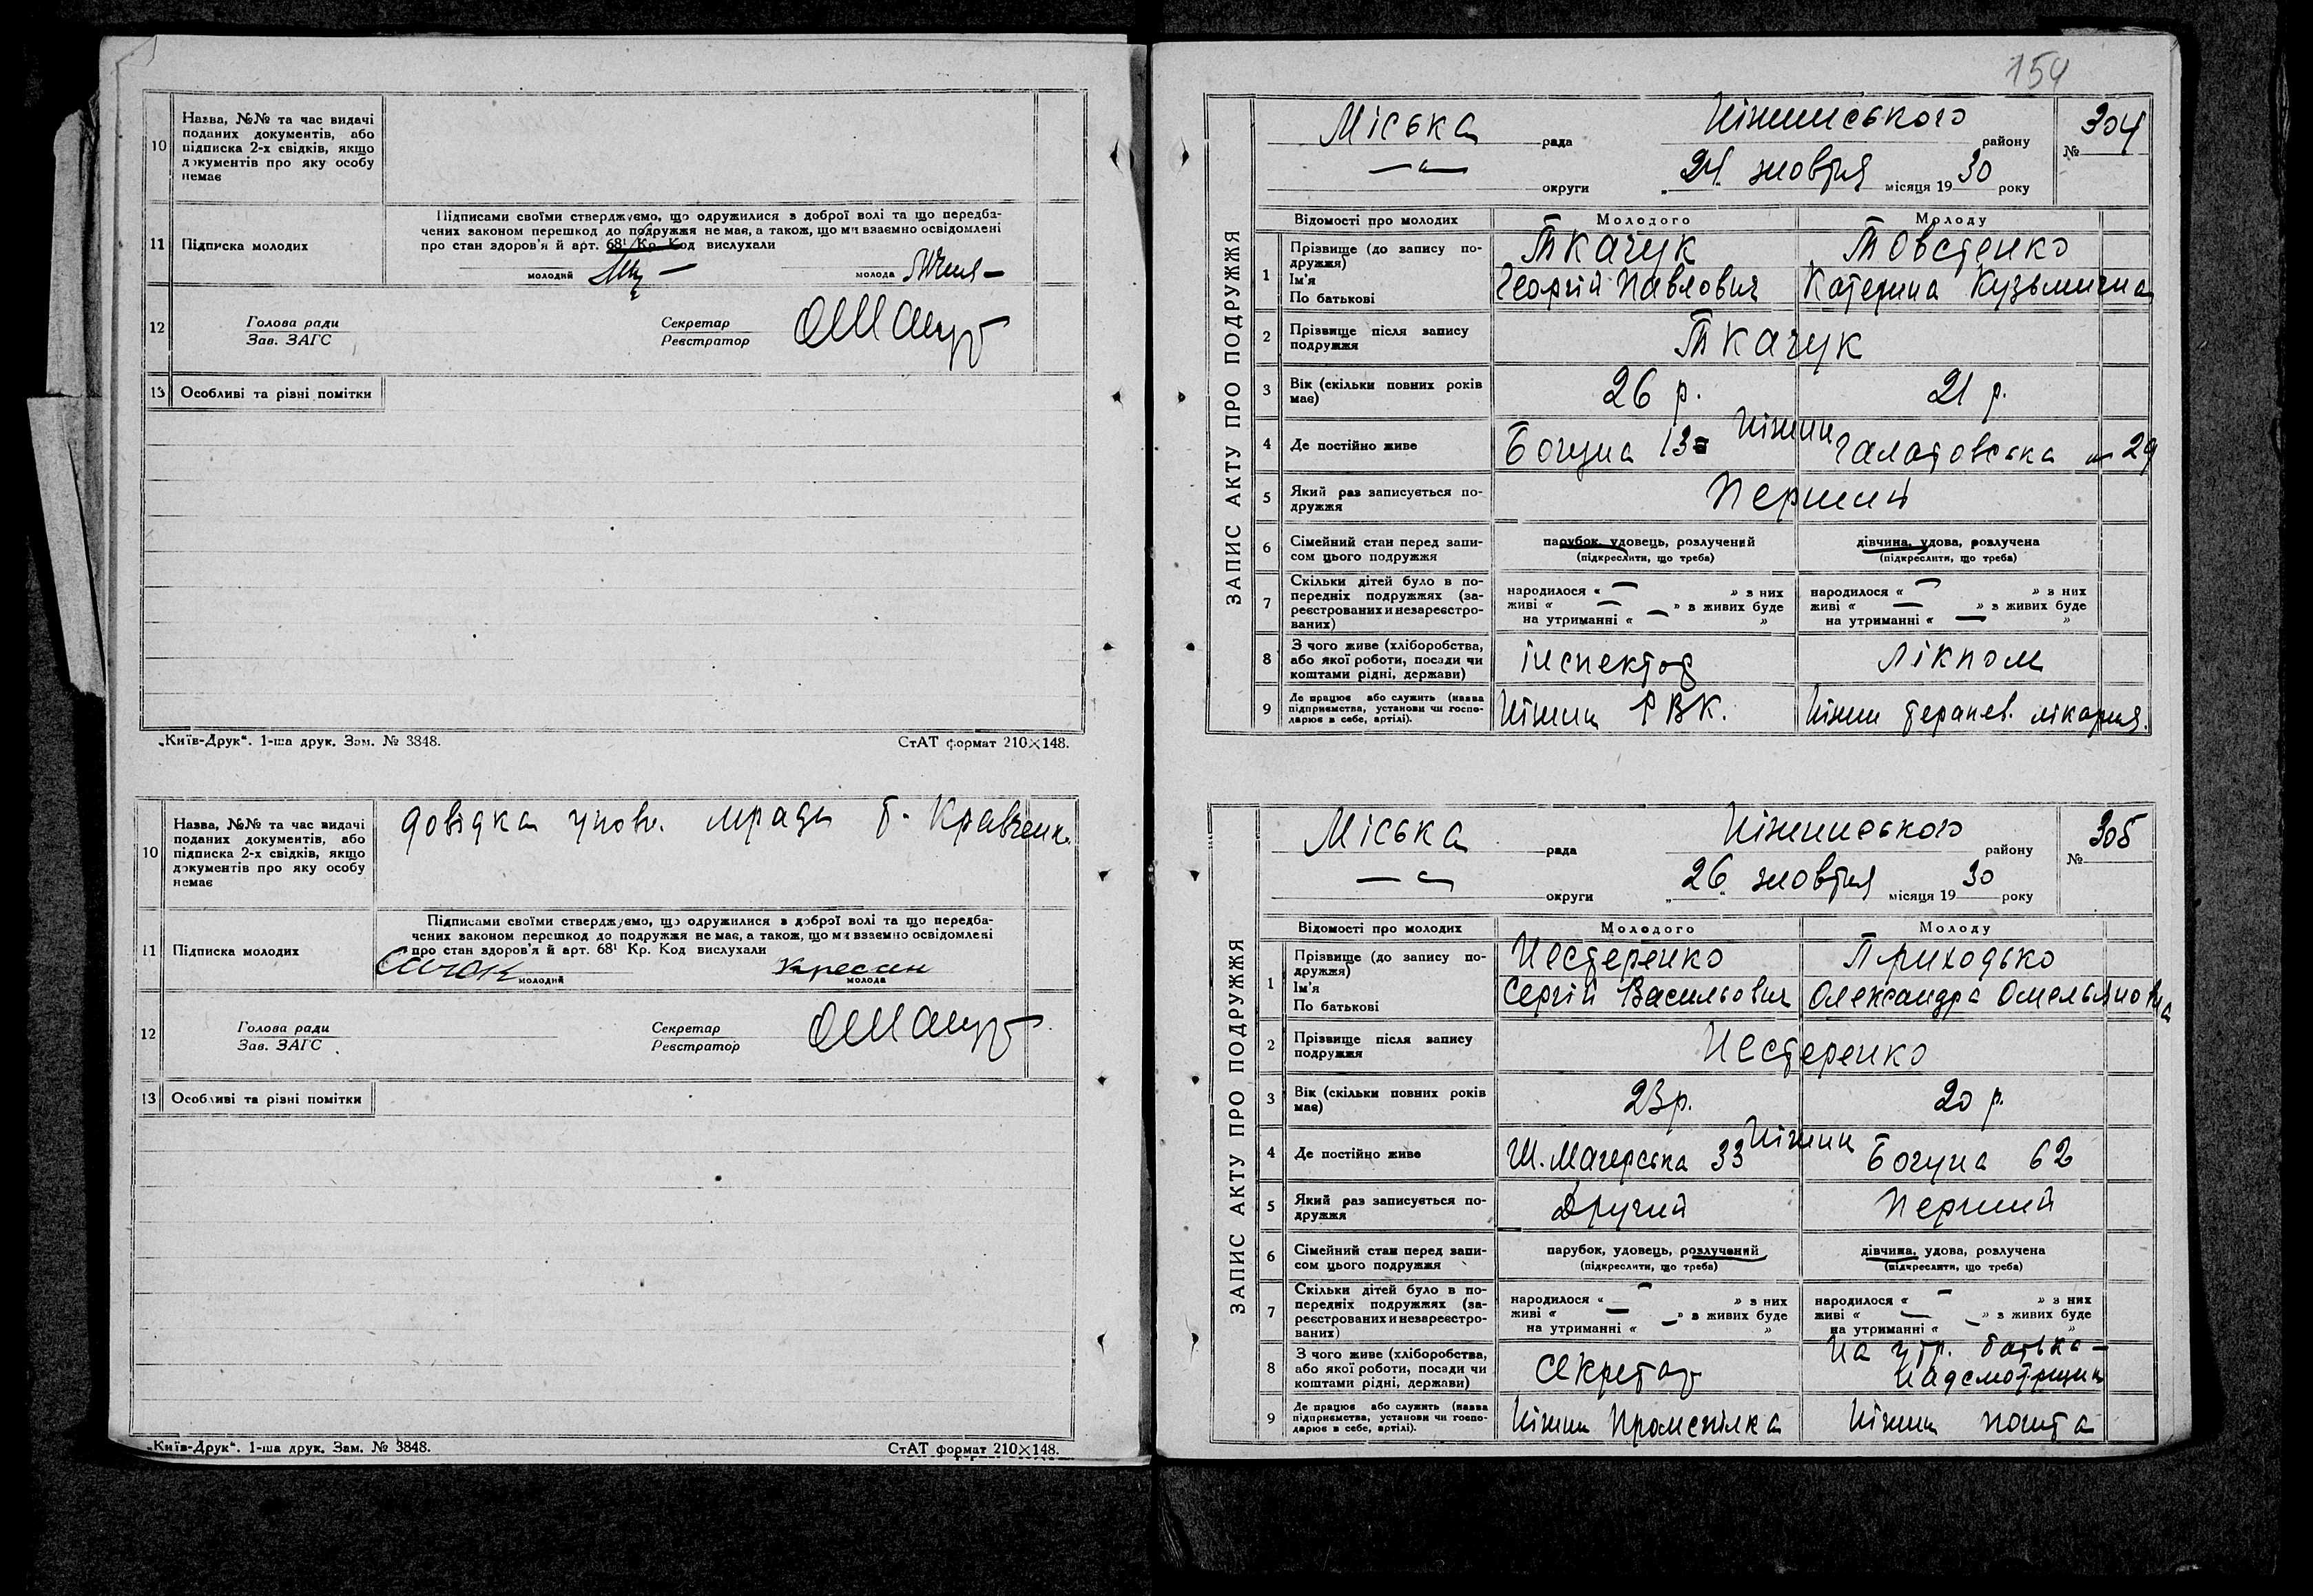 10
Назва, №№ та час видачі
поданих документів, або
підписка 2-х свідків, якщо
документів про яку особу
немає
11
Підписка молодих
Підписами своїми стверджуємо, що одружилися з доброї волі та що передба-
чених законом перешкод до подружжя не має, а також, що ми взаємно освідомлені
про стан здоров'я й арт. 68¹ Кр. Код вислухали
молодий
молода
12
Голова ради
Зав. ЗАГС
Секретар
Реєстратор
13 Особливі та різні помітки
„Київ-Друк“. 1-ша друк. Зам. № 3848.
СтАТ формат 210×148.
10
Назва, №№ та час видачі
поданих документів, або
підписка 2-х свідків, якщо
документів про яку особу
немає
довідка уповн. мради т. Кравченк.
11
Підписка молодих
Підписами своїми стверджуємо, що одружилися з доброї волі та що передба-
чених законом перешкод до подружжя не має, а також, що ми взаємно освідомлені
про стан здоров'я й арт. 68¹ Кр. Код вислухали
молодий
молода
12
Голова ради
Зав. ЗАГС
Секретар
Реєстратор
13 Особливі та різні помітки
„Київ-Друк“. 1-ша друк. Зам. № 3848.
СтАТ формат 210×148.
154
ЗАПИС АКТУ ПРО ПОДРУЖЖЯ
Міська рада Ніжинського району № 304
— „ — округи „24„ жовтня місяця 1930 року
Відомості про молодих Молодого Молоду
1
Прізвище (до запису по-
дружжя)
Ім'я
По батькові
Ткачук
Георгій Павлович
Товстенко
Катерина Кузьмична
2
Прізвище після запису
подружжя
Ткачук
3
Вік (скільки повних років
має)
26 р.
21 р.
4 Де постійно живе
Ніжин
Богуна 13
Галатовська 29
5
Який раз записується по-
дружжя
Перший
6
Сімейний стан перед запи-
сом цього подружжя
парубок, удовець, розлучений
(підкреслити, що треба)
дівчина, удова, розлучена
(підкреслити, що треба)
7
Скільки дітей було в по-
передніх подружжях (за-
реєстрованих и незареєстро-
ваних)
народилося « — » з них
живі « — » з живих буде
на утриманні « — »
народилося « — » з них
живі « — » з живих буде
на утриманні « — »
8
З чого живе (хліборобства,
або якої роботи, посади чи
коштами рідні, держави)
інспектор
Лікпом
9
Де працює або служить (назва
підприємства, установи чи госпо-
дарює в себе, артілі).
Ніжин РВК.
Ніжин терапев. лікарня.
ЗАПИС АКТУ ПРО ПОДРУЖЖЯ
Міська рада Ніжинського району № 305
— „ — округи „26„ жовтня місяця 1930 року
Відомості про молодих Молодого Молоду
1
Прізвище (до запису по-
дружжя)
Ім'я
По батькові
Нестеренко
Сергій Васильович
Приходько
Олександра Омельяновна
2
Прізвище після запису
подружжя
Нестеренко
3
Вік (скільки повних років
має)
23 р.
20 р.
4 Де постійно живе
Ніжин
Ш. Магерська 33
Богуна 62
5
Який раз записується по-
дружжя
Другий
Перший
6
Сімейний стан перед запи-
сом цього подружжя
парубок, удовець, розлучений
(підкреслити, що треба)
дівчина, удова, розлучена
(підкреслити, що треба)
7
Скільки дітей було в по-
передніх подружжях (за-
реєстрованих и незареєстро-
ваних)
народилося « — » з них
живі « — » з живих буде
на утриманні « — »
народилося « — » з них
живі « — » з живих буде
на утриманні « — »
8
З чого живе (хліборобства,
або якої роботи, посади чи
коштами рідні, держави)
Секретар
На утр. батька —
надсмотрщик
9
Де працює або служить (назва
підприємства, установи чи госпо-
дарює в себе, артілі).
Ніжин Промспілка
Ніжин пошта